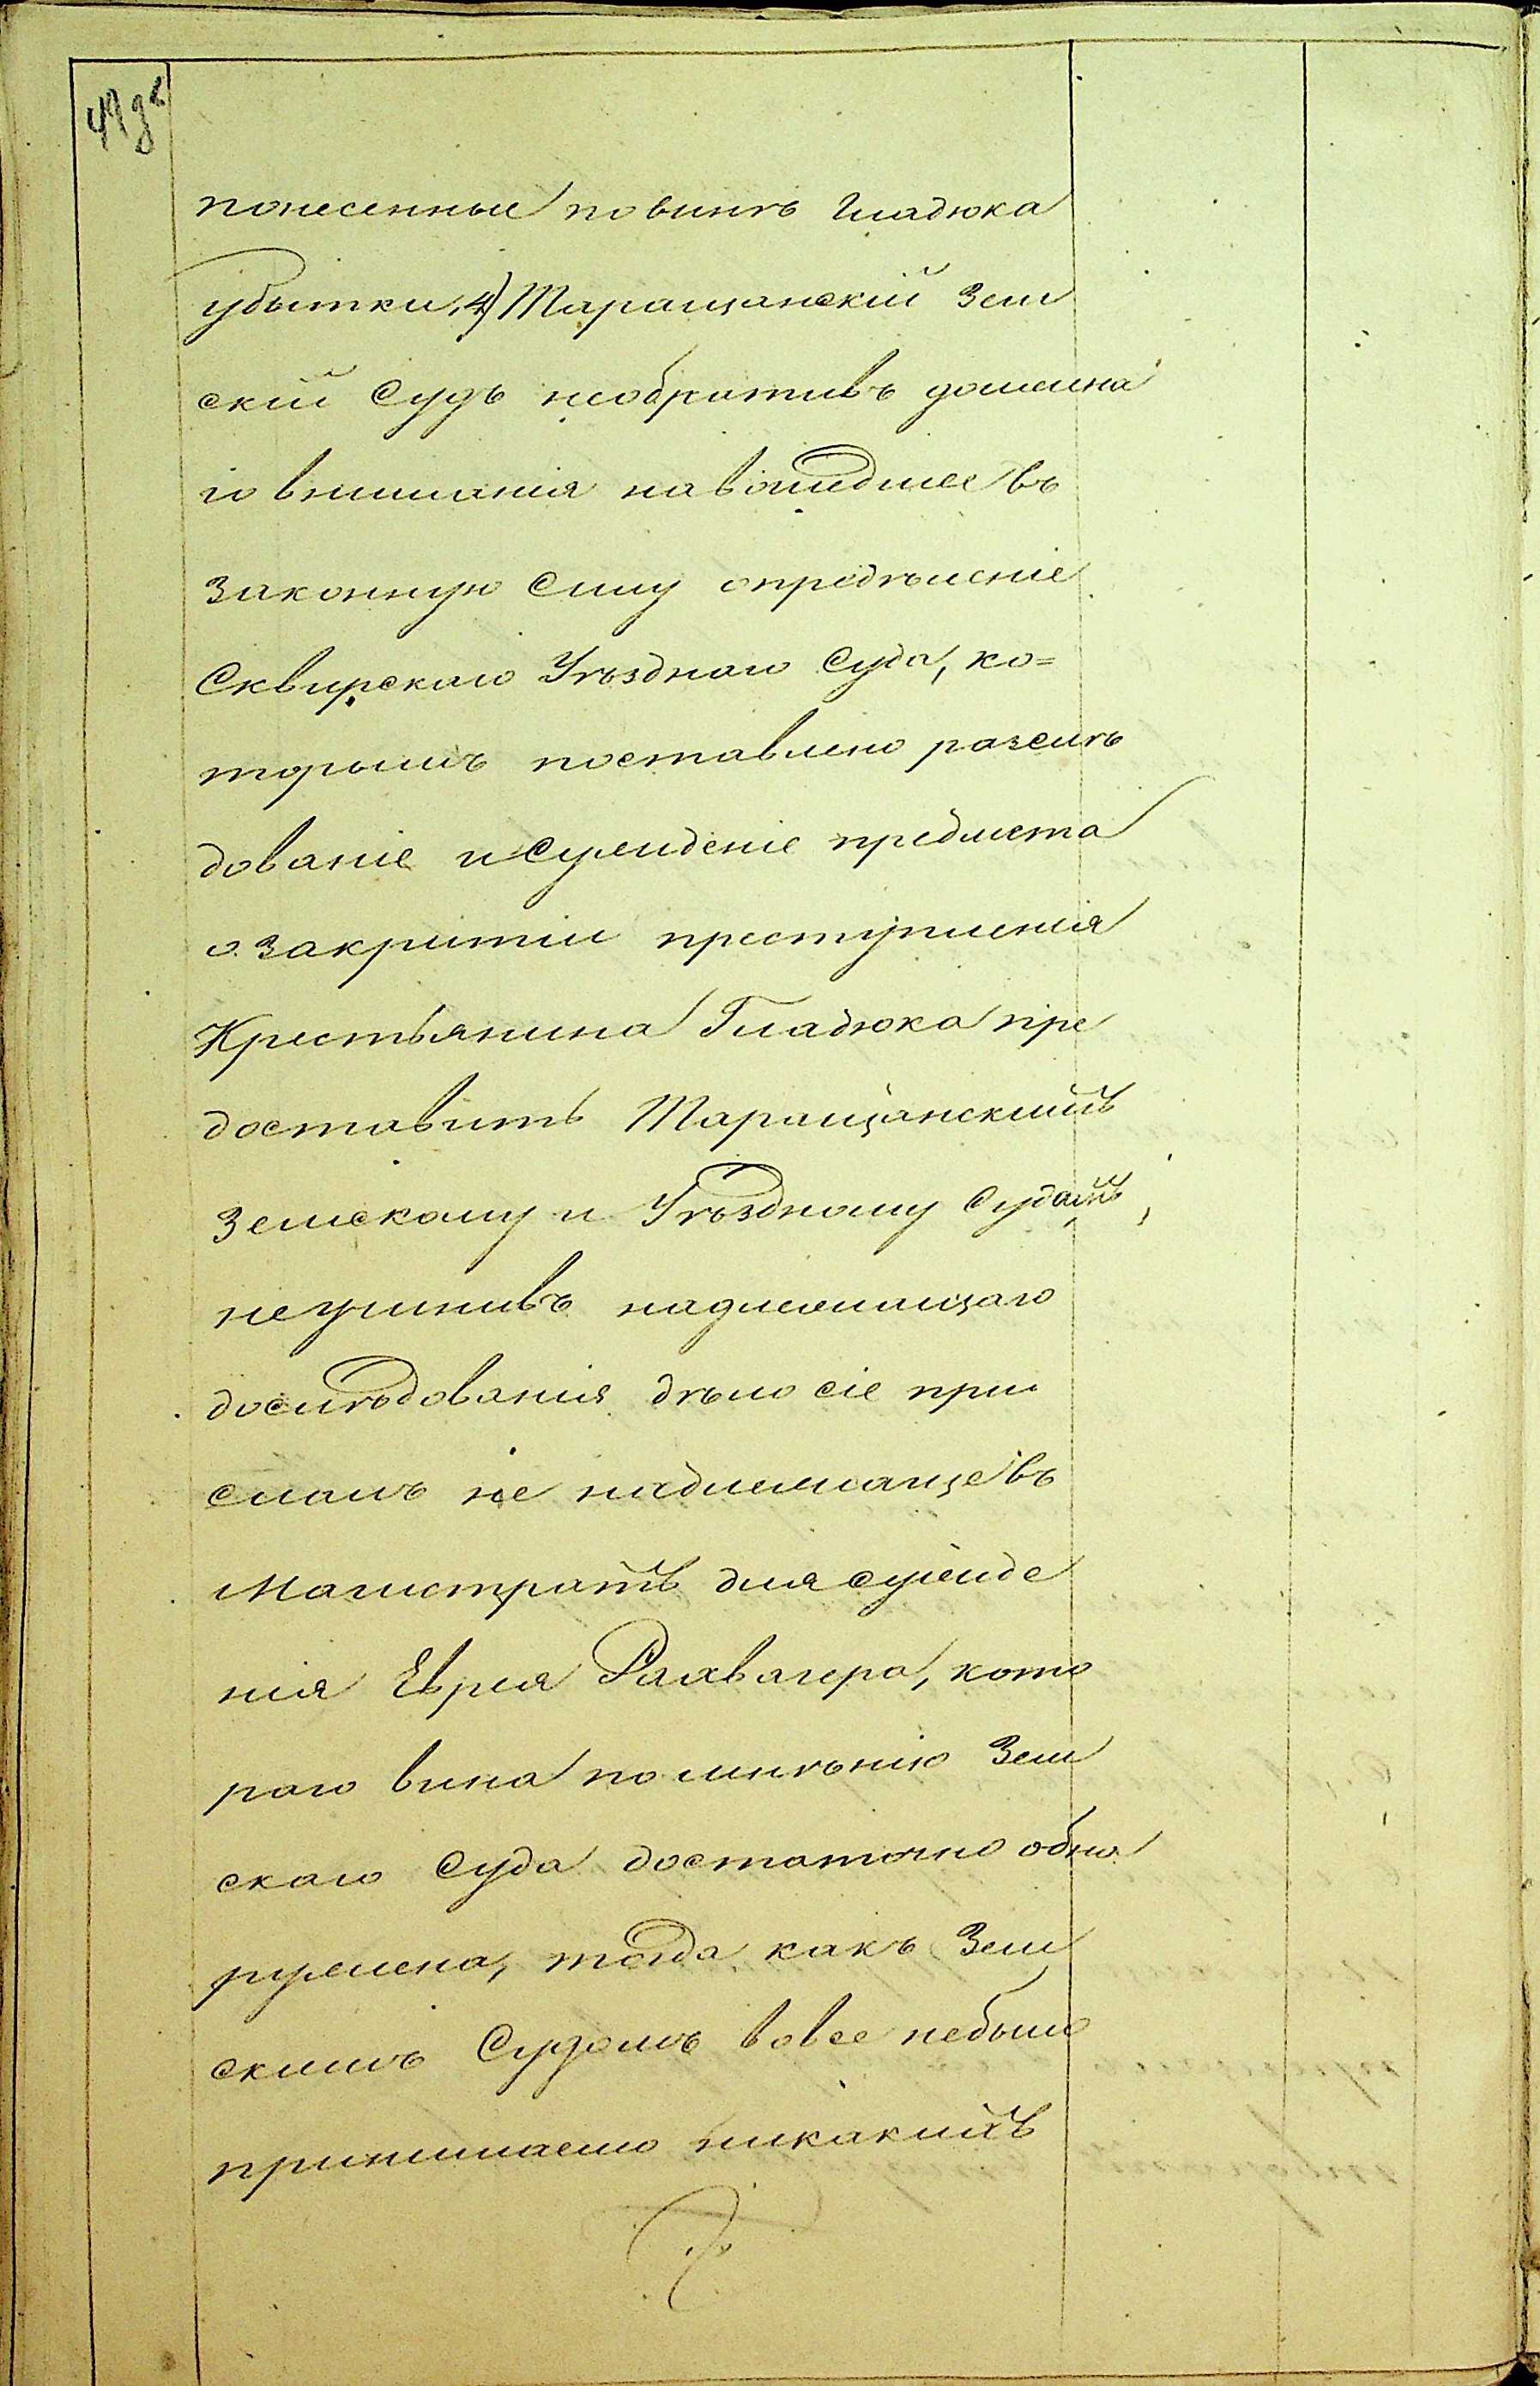 понесенные по винѣ Гладюка
убытки, 4) Таращанскій Зем
скій Судъ необративъ должна
го вниманія на вошедшее въ
законную силу опредѣленіе
Сквирскаго Уѣзднаго Суда, ко=
торымъ поставлено разслѣ
дованіе и сужденіе предмета
о закрытіи преступленія
Крестьянина Гладюка пре
доставить Таращанскимъ
Земскому и Уѣздному Судамъ,
неучинивъ надлежащаго
дослѣдованія дѣло сіе при
слалъ не надлежаще въ
Магистратъ для сужде
нія Еврея Ралхвагера, кото
раго вина по мнѣнію Зем
скаго Суда достаточно обна
ружена, тогда какъ Зем
скимъ Судомъ вовсе небыло
принимаемо никакихъ